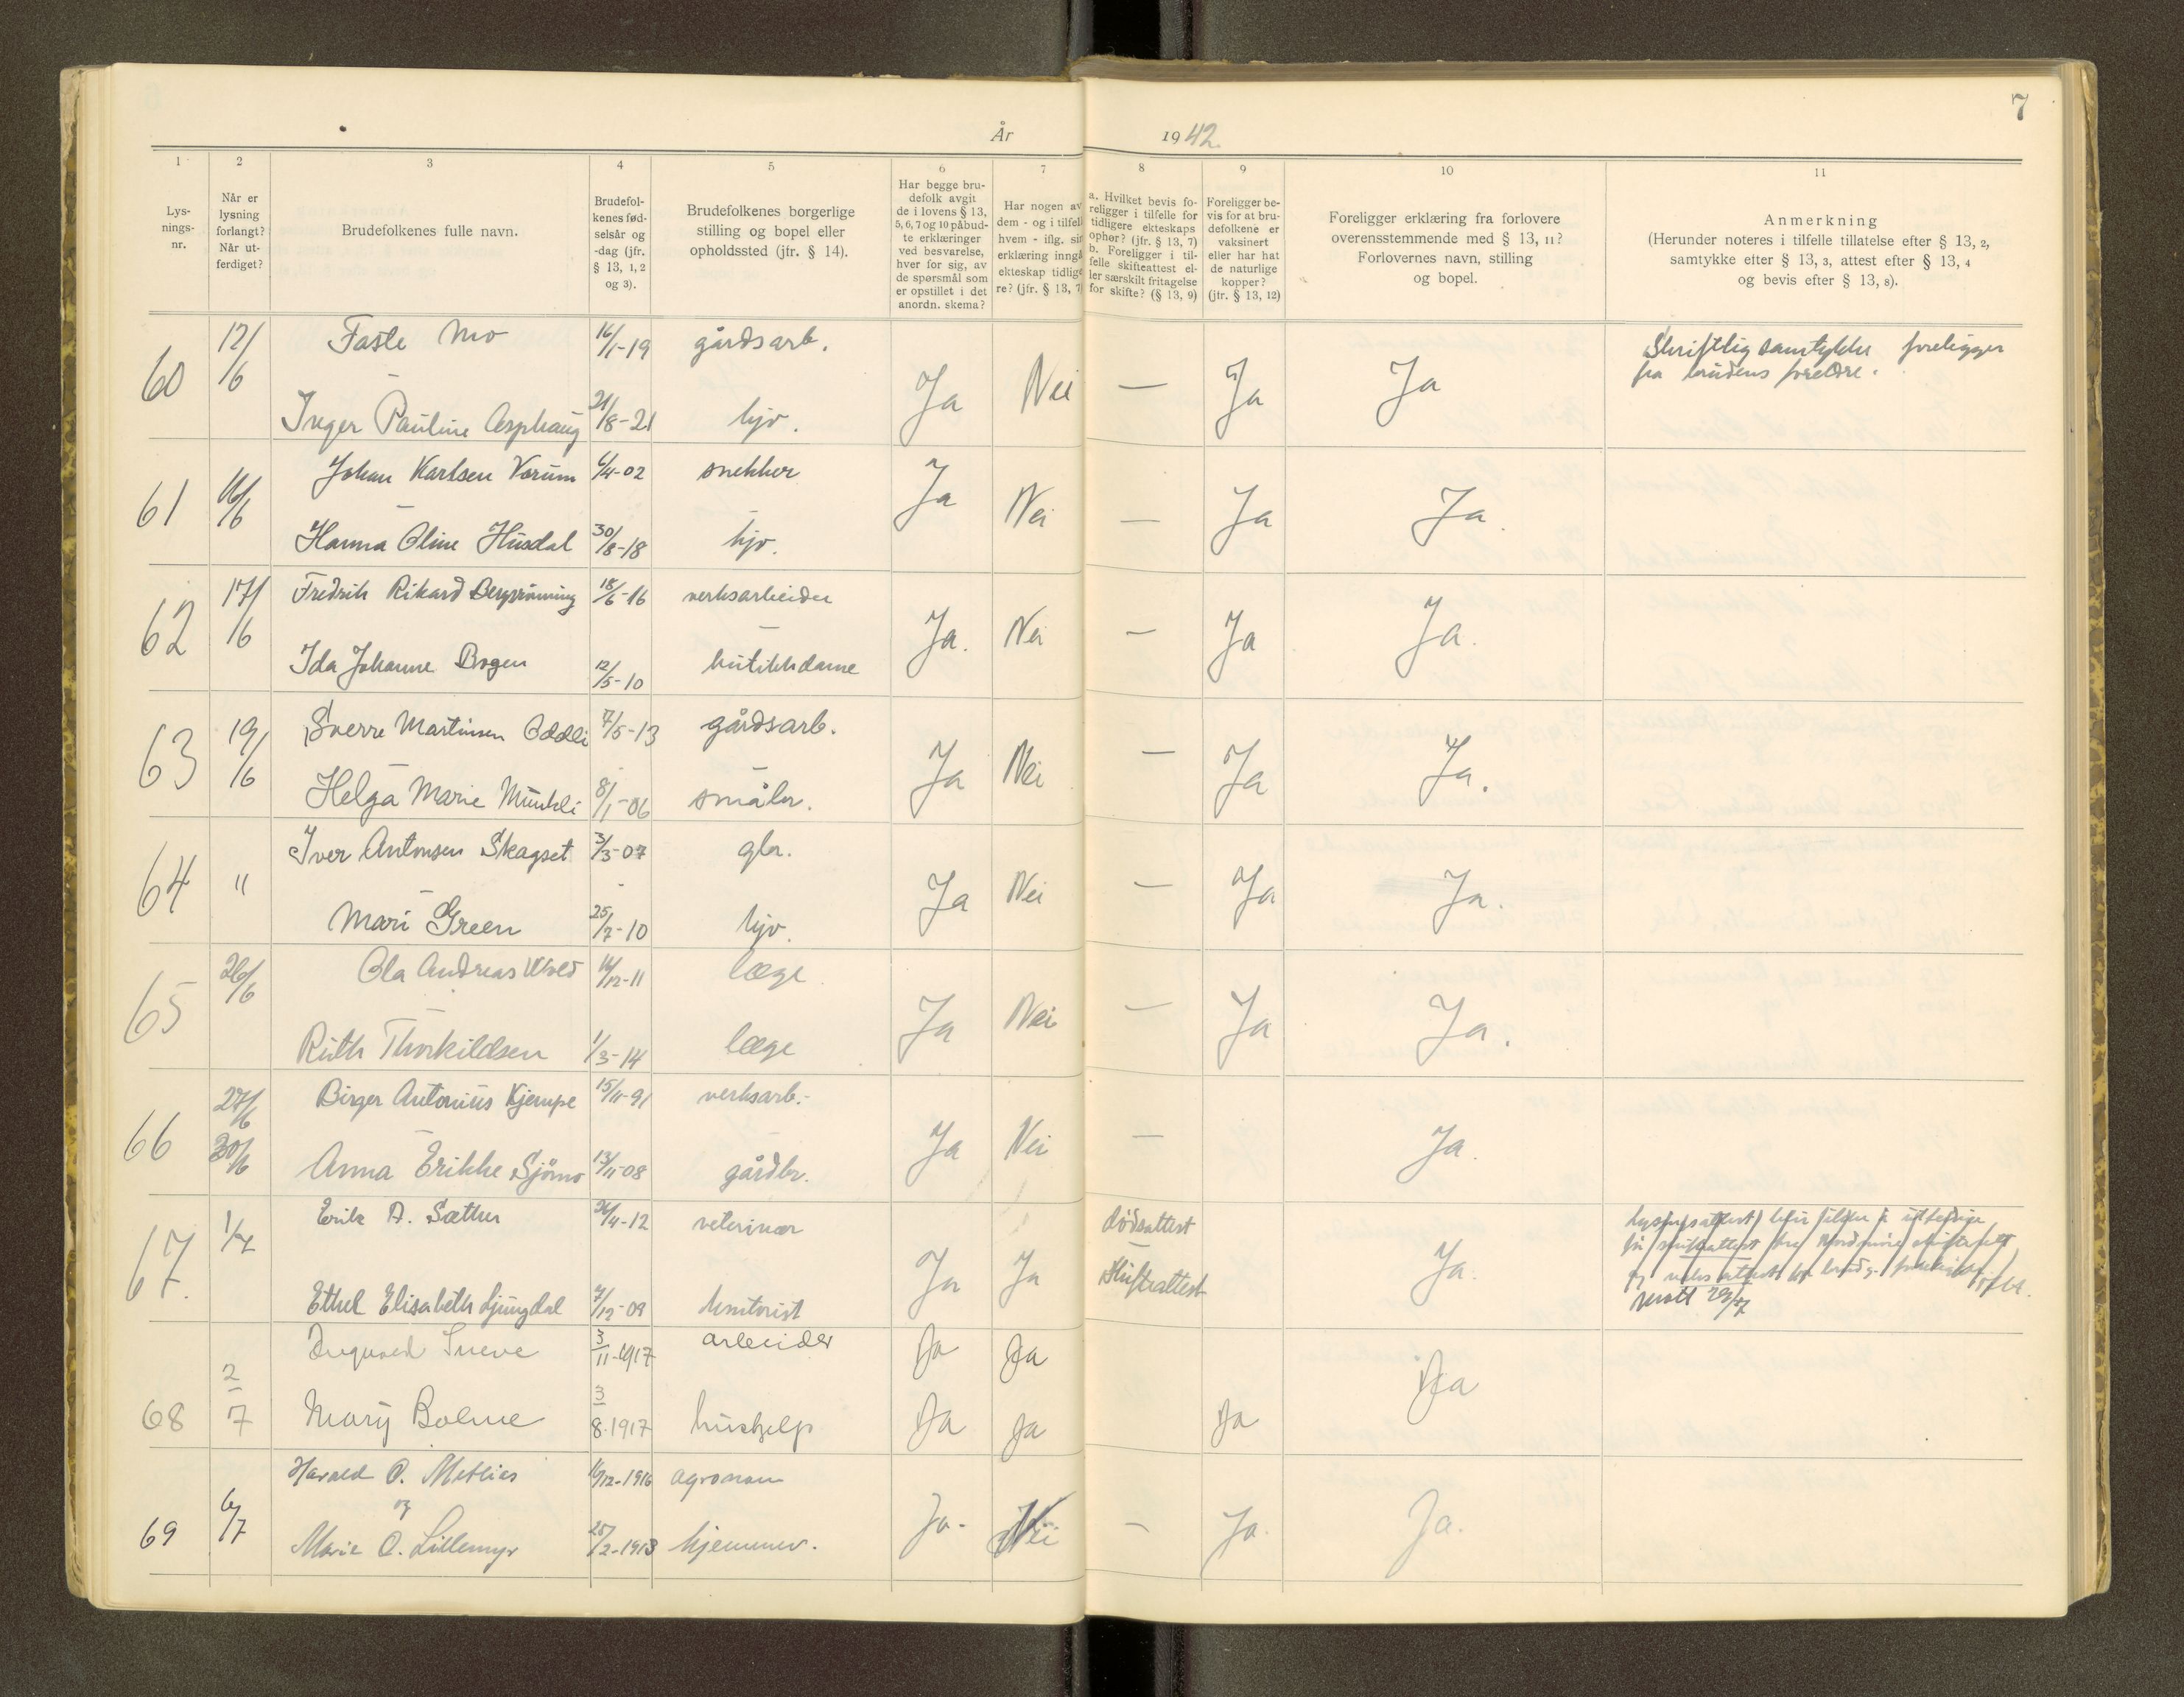 7
År 1942.
1 2 3 4 5 6 7 8 9 10 11
Lys-
nings-
nr.
Når er
lysning
forlangt?
Når ut-
ferdiget?
Brudefolkenes fulle navn.
Brudefol-
kenes fød-
selsår og
-dag (jfr.
§ 13, 1, 2
og 3).
Brudefolkenes borgerlige
stilling og bopel eller
opholdssted (jfr. § 14).
Har begge bru-
defolk avgit
de i lovens § 13,
5, 6, 7 og 10 påbud-
te erklæringer
ved besvarelse,
hver for sig, av
de spørsmål som
er opstillet i det
anordn. skema?
Har nogen av
dem - og i tilfelle
hvem - iflg. sin
erklæring inngå
ekteskap tidlige
re? (jfr. § 13, 7)
a. Hvilket bevis fo-
religger i tilfelle for
tidligere ekteskaps
ophør? (jfr. § 13, 7)
b. Foreligger i til-
felle skifteattest el-
ler særskilt fritagelse
for skifte? (§ 13, 9)
Foreligger be-
vis for at bru-
defolkene er
vaksinert
eller har hat
de naturlige
kopper?
(jfr. § 13, 12)
Foreligger erklæring fra forlovere
overensstemmende med § 13, 11?
Forlovernes navn, stilling
og bopel.
Anmerkning
(Herunder noteres i tilfelle tillatelse efter § 13, 2,
samtykke efter § 13, 3, attest efter § 13, 4
og bevis efter § 13, 8).
60 12/6 Faste Mo 16/1-19 gårdsarb.
Inger Pauline Asphaug 21/8-21 hjv. Ja Nei — Ja Ja
Skriftlig samtykke foreligger
fra brudens foreldre.
61 16/6 Johan Karlsen Vorum 6/4-02 snekker
Hanna Oline Husdal 30/8-18 hjv. Ja Nei — Ja Ja.
62 17/6 Fredrik Rikard Bergrønning 18/6-16 verksarbeider
Ida Johanne Bogen 12/5-10 butikkdame Ja. Nei — Ja Ja.
63 19/6 Sverre Martinsen Oddli 7/5-13 gårdsarb.
Helga Marie Munkli 8/1-06 småbr. Ja Nei — Ja Ja.
64 " Iver Antonsen Skagset 3/3-07 gbr.
Mari Green 25/7-10 hjv. Ja Nei — Ja Ja.
65 26/6 Ola Andreas 14/12-11 læge
Ruth Thorkildsen 1/3-14 læge Ja Nei — Ja Ja.
66 27/6 30/6 Birger Antonius Kjempe 15/11-91 verksarb.
Anna Erikke Sjømo 13/11-08 gårdbr. Ja Nei — Ja.
67. 1/7 Erik A. Sæther 26/4-12 veterinær
Ethel Elisabeth Ljungdal 7/12-09 kontorist Ja Ja
dødsattest
Skifteattest
Ja.
68 2/7 Ingvard Sneve 3/11-1917 arbeider Ja Ja
Mary Bolme 3/8.1917 hushjelp Ja Ja Ja Ja
69 6/7 Harald O. 16/12-1916 agronom
og
Marie O. Lillemyr 25/2-1913 hjemmev. Ja- Nei — Ja. Ja.